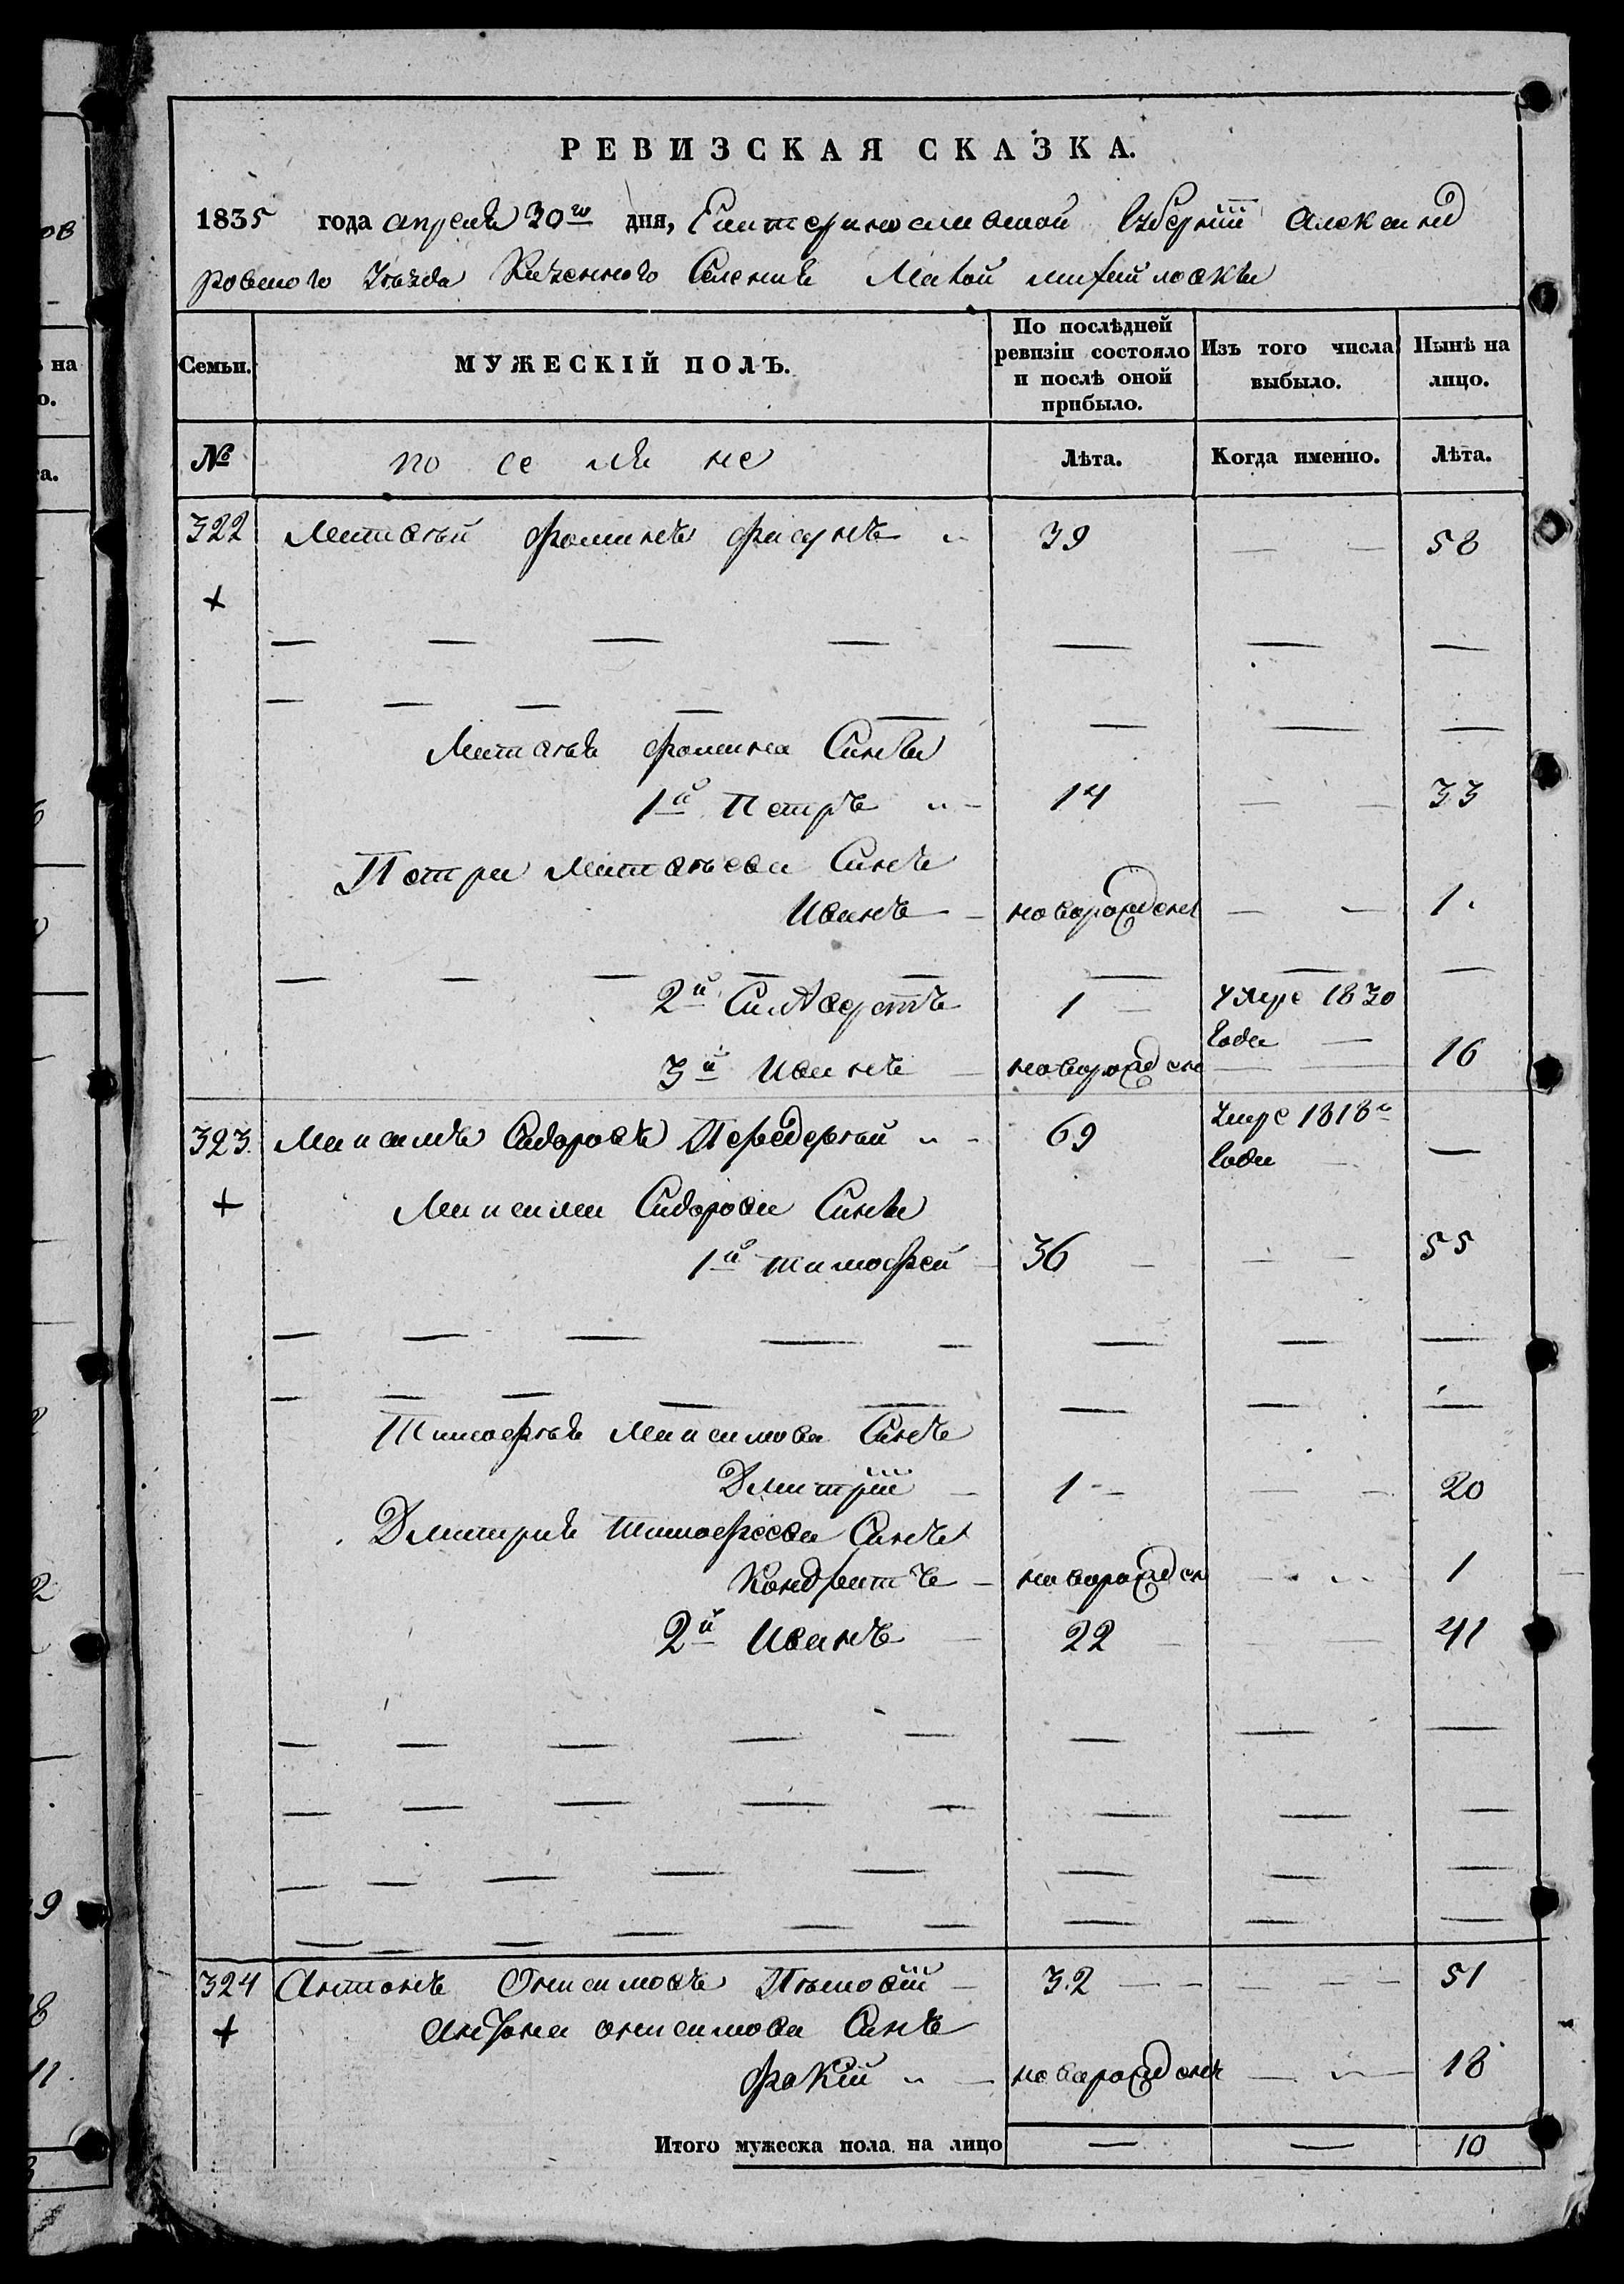 РЕВИЗСКАЯ СКАЗКА.
1835 года апреля 30го дня, Екатеринославской Губернiи Александ
ровского Уезда Казенного Селения Малой михайловки
Семьи. МУЖЕСКІЙ ПОЛЪ. По послѣдней ревизіи состояло и послѣ оной прибыло. Изъ того числа выбыло. Нынѣ на лицо.
№ Лѣта. Когда именно. Лѣта.
322 Матвѣй Фоминъ 39 — — 58
+
Матвѣя Фомина Синъи
1й Петръ 14 — — 33
Петра Матвѣева Синъ
Иванъ новорожден — — 1.
2й Силвестръ 1 Умре 1830
года
3й Иванъ новорожден — — 16
323 Максимъ Сидоровъ Передерѣй 69 Умре 1818го
года —
+ Максима Сидорова Синъи
1й тимофей 36 — — 55
Тимофѣя Максимова Синъ
Дмитрiй 1 — — 20
Дмитрия Тимофеева Синъ
Кондратъ новорожден — 1
2й Иванъ 22 — 41
324 Антонъ Онисимовъ 32 — — 51
+ Антона онисимова Синъ
Фокiй новорожденъ — — 18
Итого мужеска пола на лицо — — 10